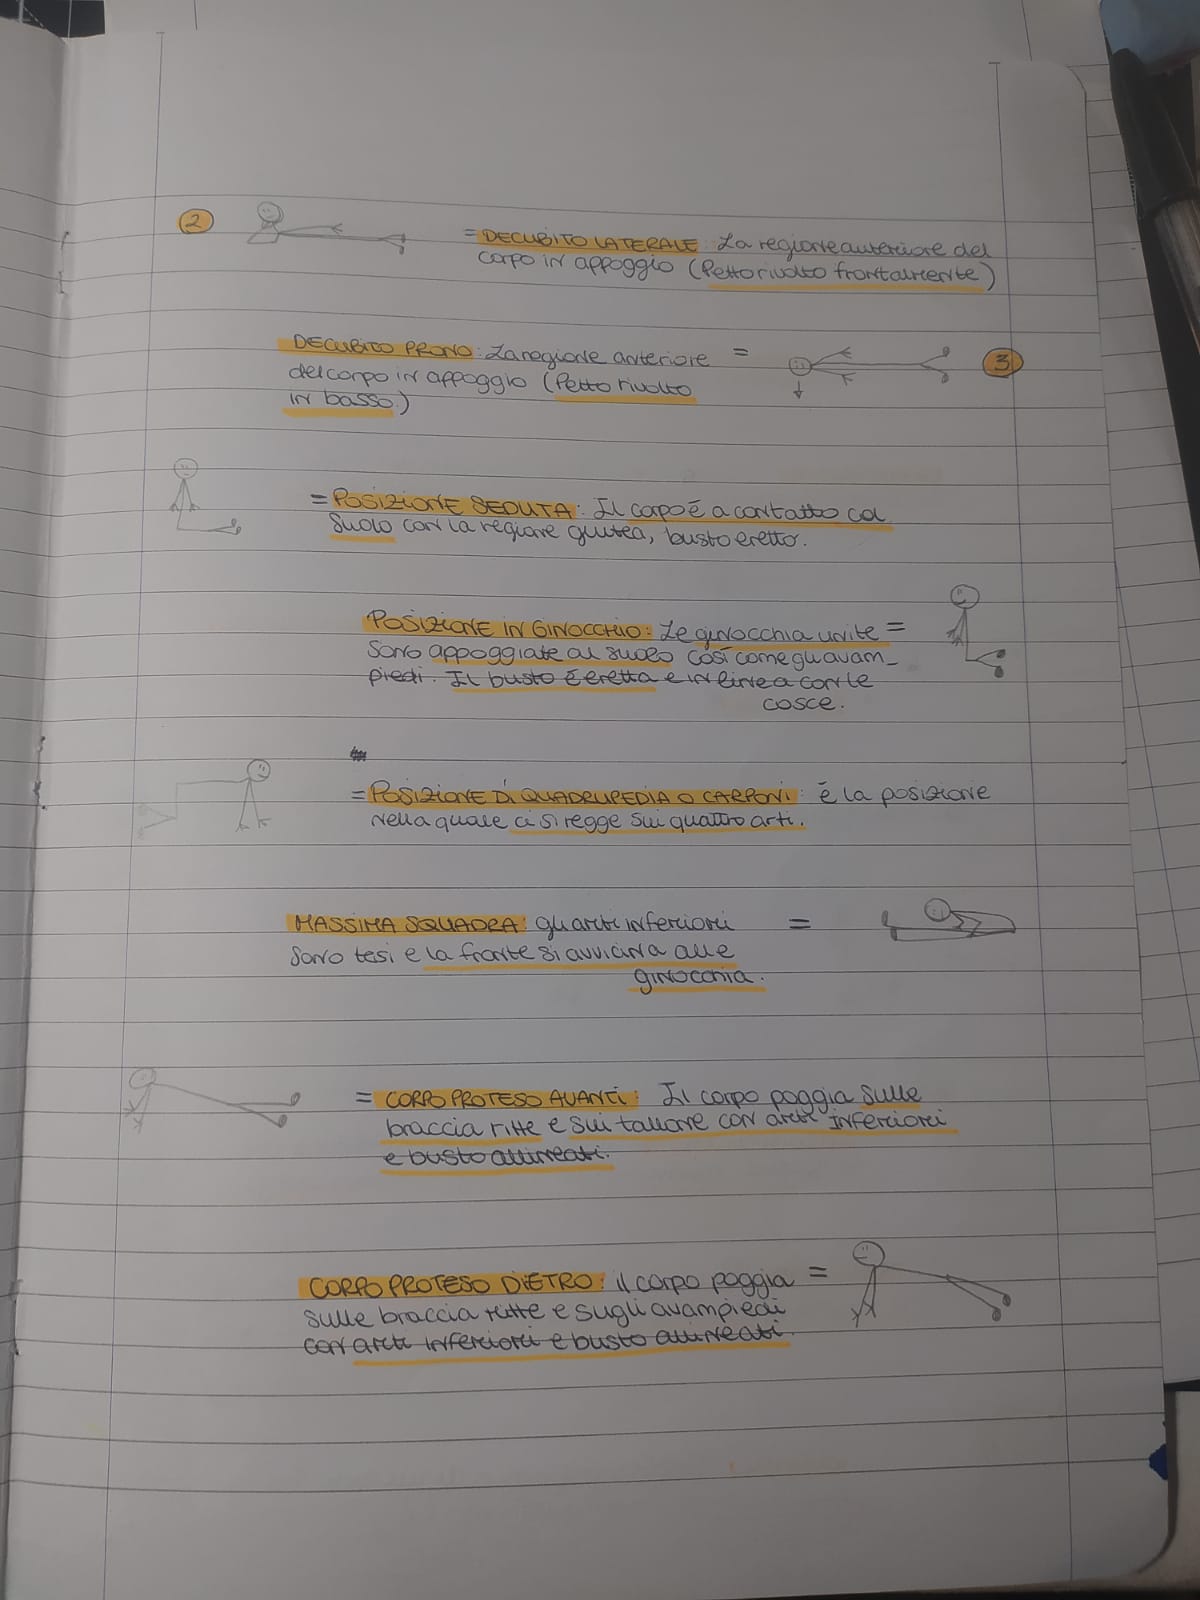 2
= DECUBITO LATERALE: La regione anteriore del
corpo in appoggio (Petto rivolto frontalmente)
DECUBITO PRONO: La regione anteriore =
del corpo in appoggio (Petto rivolto
in basso)
3
= POSIZIONE SEDUTA: Il corpo é a contatto col
suolo con la regione glutea, busto eretto.
POSIZIONE IN GINOCCHIO: Le ginocchia unite =
sono appoggiate al suolo così come gli avam_
piedi. Il busto é eretta e in linea con le
cosce.
= POSIZIONE DI QUADRUPEDIA O CARPONI: é la posizione
nella quale ci si regge sui quattro arti.
MASSIMA SQUADRA: gli arti inferiori =
sono tesi e la fronte si avvicina alle
ginocchia.
= CORPO PROTESO AVANTI: Il corpo poggia sulle
braccia ritte e sui tallone con arti inferiori
e busto allineati.
CORPO PROTESO DIETRO: il corpo poggia =
sulle braccia ritte e sugli avampiedi
con arti inferiori e busto allineati.